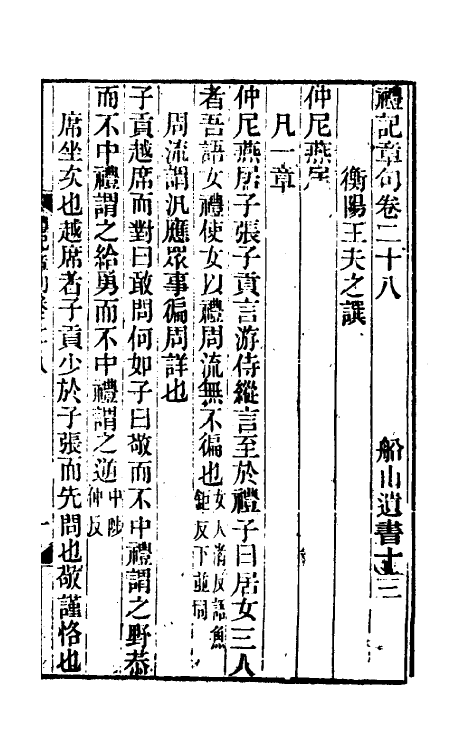 禮記章句卷二十八 船山遺書十三
衡陽王夫之譔
仲尼燕居
凡一章
仲尼燕居子張子貢言游侍縱言至於禮子曰居女三人
者吾語女禮使女以禮周流無不徧也女人渚反語魚鉅反下並同
周流謂汎應眾事徧周詳也
子貢越席而對曰敢問何如子曰敬而不中禮謂之野恭
而不中禮謂之給勇而不中禮謂之逆中陟仲反
席坐次也越席者子貢少於子張而先問也敬謹恪也